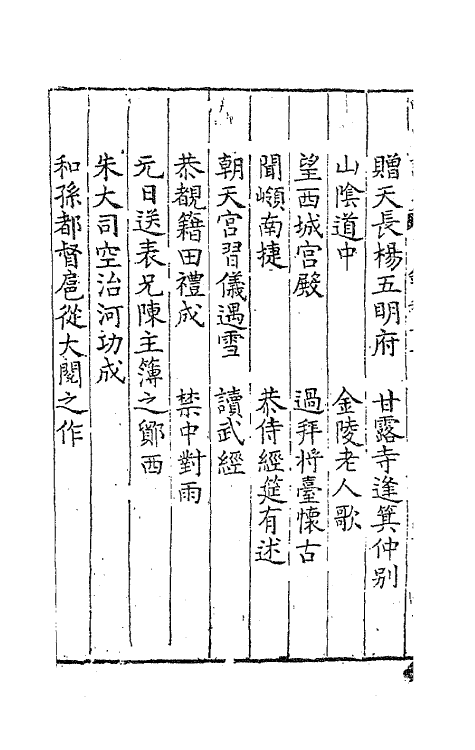 贈天長楊五明府　甘露寺逢箕仲別
山陰道中　金陵老人歌
望西城宮殿　過拜將臺懷古
聞嶺南捷　恭侍經筵有述
朝天宮習儀遇雪　讀武經
恭覩籍田禮成　禁中對雨
元日送表兄陳主簿之鄖西
朱大司空治河功成
和孫都督扈從大閱之作